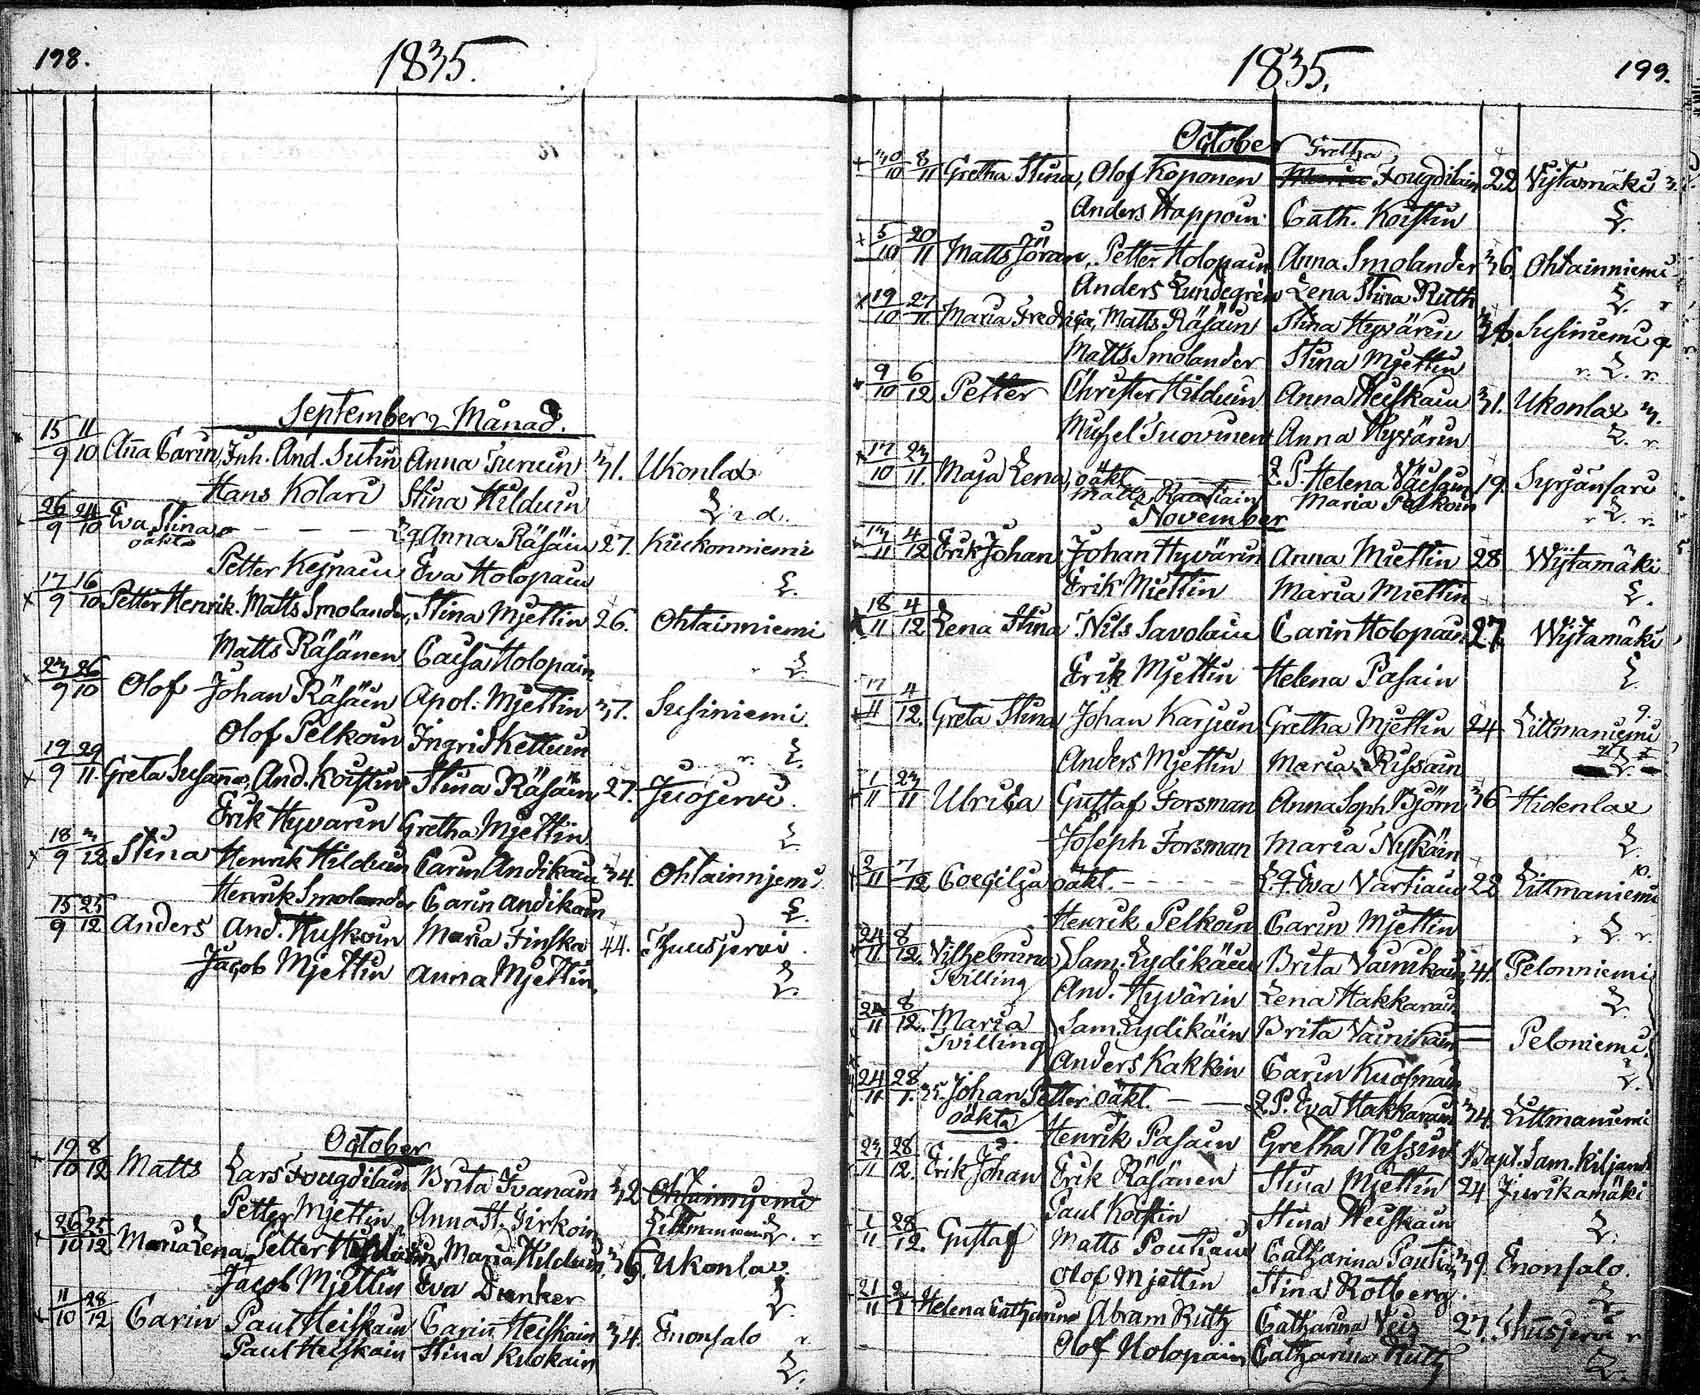 198.
1835.
September Månad.
15/9 11/10 Anna Carin, Inh. And. Sutin Anna Turuin 31. Ukonlax
Hans Kolari Stina Hilduin
26/9 24/10 Eva Stina Anna Räsäin 27. Kiukonniemi
oäkta
Petter Eva Holopain
17/9 16/10 Petter Henrik. Matts Smolander, Stina Mjettin 26. Ohtainniemi
Matts Räsänen Caisa Holopain
23/9 26/10 Olof Johan Räsäin Apol: Mjettin 37. Susiniemi
Olof Pelkoin Ingrid Kettuin
19/9 29/11 Greta Susanna, And. Koistin Stina Räsäin 27. Juojervi
Erik Hyvärin Gretha Mjettin
18/9 3/12 Stina Henrik Hilduin Carin Andikain 34. Ohtainnjemi
Henrik Smolander Carin Andikain
15/9 25/12 Anders And. Huskoin Maria Finska 44. Thuusjervi
Jacob Mjettin Anna Mjettin
October
19/10 8/12 Matts Lars Fougdilain Brita Ivanain 32 Ohtainnjemi
Petter Mjettin Anna St. Littmaniemi
26/10 25/12 Maria Lena Petter Maria Hilduin 36. Ukonlax
Jacob Mjettin Eva Dunker
11/10 28/12 Carin Paul Heiskain Carin Heiskain 34. Enonsalo
Paul Heiskain Stina Kuokain
1835.
199.
October
Gretha
30/10 8/11 Gretha Stina, Olof Koponen Maria Fougdilain 22 Wijtamäki
Anders Happoin Cath. Koistin
5/10 20/11 Matts Jöran, Petter Holopain Anna Smolander 36 Ohtainniemi
Anders Lundegren Lena Stina Ruth
19/10 27/11 Maria Fredrica, Matts Räsäin Stina Hyvärin Susiniemi
Matts Smolander Stina Mjettin
9/10 6/12 Petter Christer Hilduin Anna Heiskain 31. Ukonlax
Michel Tuovinen Anna Hyvärin
17/10 23/11 Maja Lena, oäkt Helena Väisäin 19. Syrjänsari
Matts Raatiain Maria Pelkoin
November
13/11 4/12 Erik Johan Johan Hyvärin Anna Miettin 28 Wijtamäki
Erik Miettin Maria Miettin
18/11 4/12 Lena Stina Nils Savolain Carin Holopain 27. Wijtamäki
Erik Mjettin Helena Pasain
17/11 4/12. Greta Stina Johan Karjuin Gretha Mjettin 24 Littmaniemi
Anders Mjettin Maria Rissain
1/11 23/11 Ulrica Gustaf Forsman Anna Soph. Björn 36 Hidenlax
Joseph Forsman Maria Niskain
2/11 7/12 Coecilja oäkt. Eva Vartiain 22 Littmaniemi
Henrik Pelkoin Carin Mjettin
24/11 8/12. Vilhelmina Sam. Lydikäin Brita Vainikain 41. Pelonniemi
Tvilling And. Hyvärin Lena Hakkarain
24/11 8/12. Maria Sam Lydikäin Brita Vainikain Peloniemi
Tvilling Anders Kakkin Carin Kuosmain
24/11 28/1. Johan Petter oäkt. Eva Hakkarain 34. Littmaniemi
oäkta Henrik Pasain Gretha Nissin Bapt. Sam. Kiljand.
23/11 28/12. Erik Johan Erik Räsänen Stina Mjettin 24 Jurikamäki
Paul Koistin Stina Heiskain
1/11 28/12. Gustaf Matts Poutiain Catharina Poutiain 39. Enonsalo
Olof Mjettin Stina Rotberg
21/11 2/1 Helena Catharina Abram Ruth Catharina 27. Thusjervi
Olof Holopain Catharina Ruth